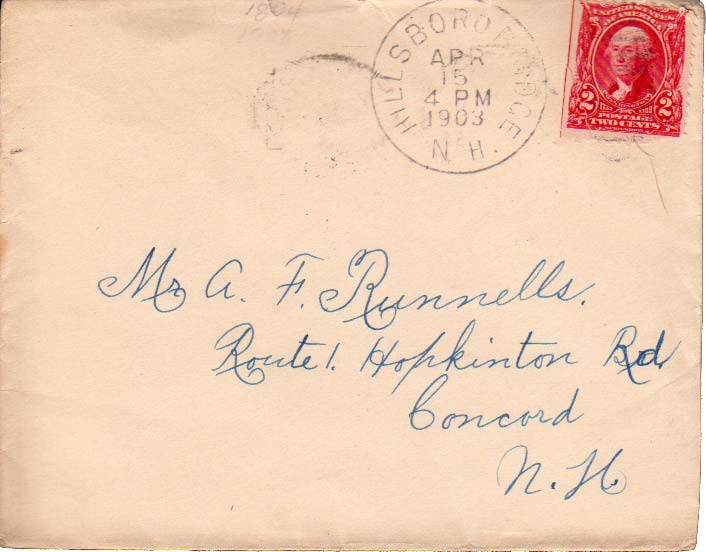 1804
HILLSBORO BRIDGE
APR
15
4 PM
1903
N.H.
UNITED STATES
OF AMERICA
WASHINGTON
2 2
POSTAGE
TWO CENTS
Mr A. F. Runnells.
Route 1. Hopkinton Rd.
Concord
N. H.